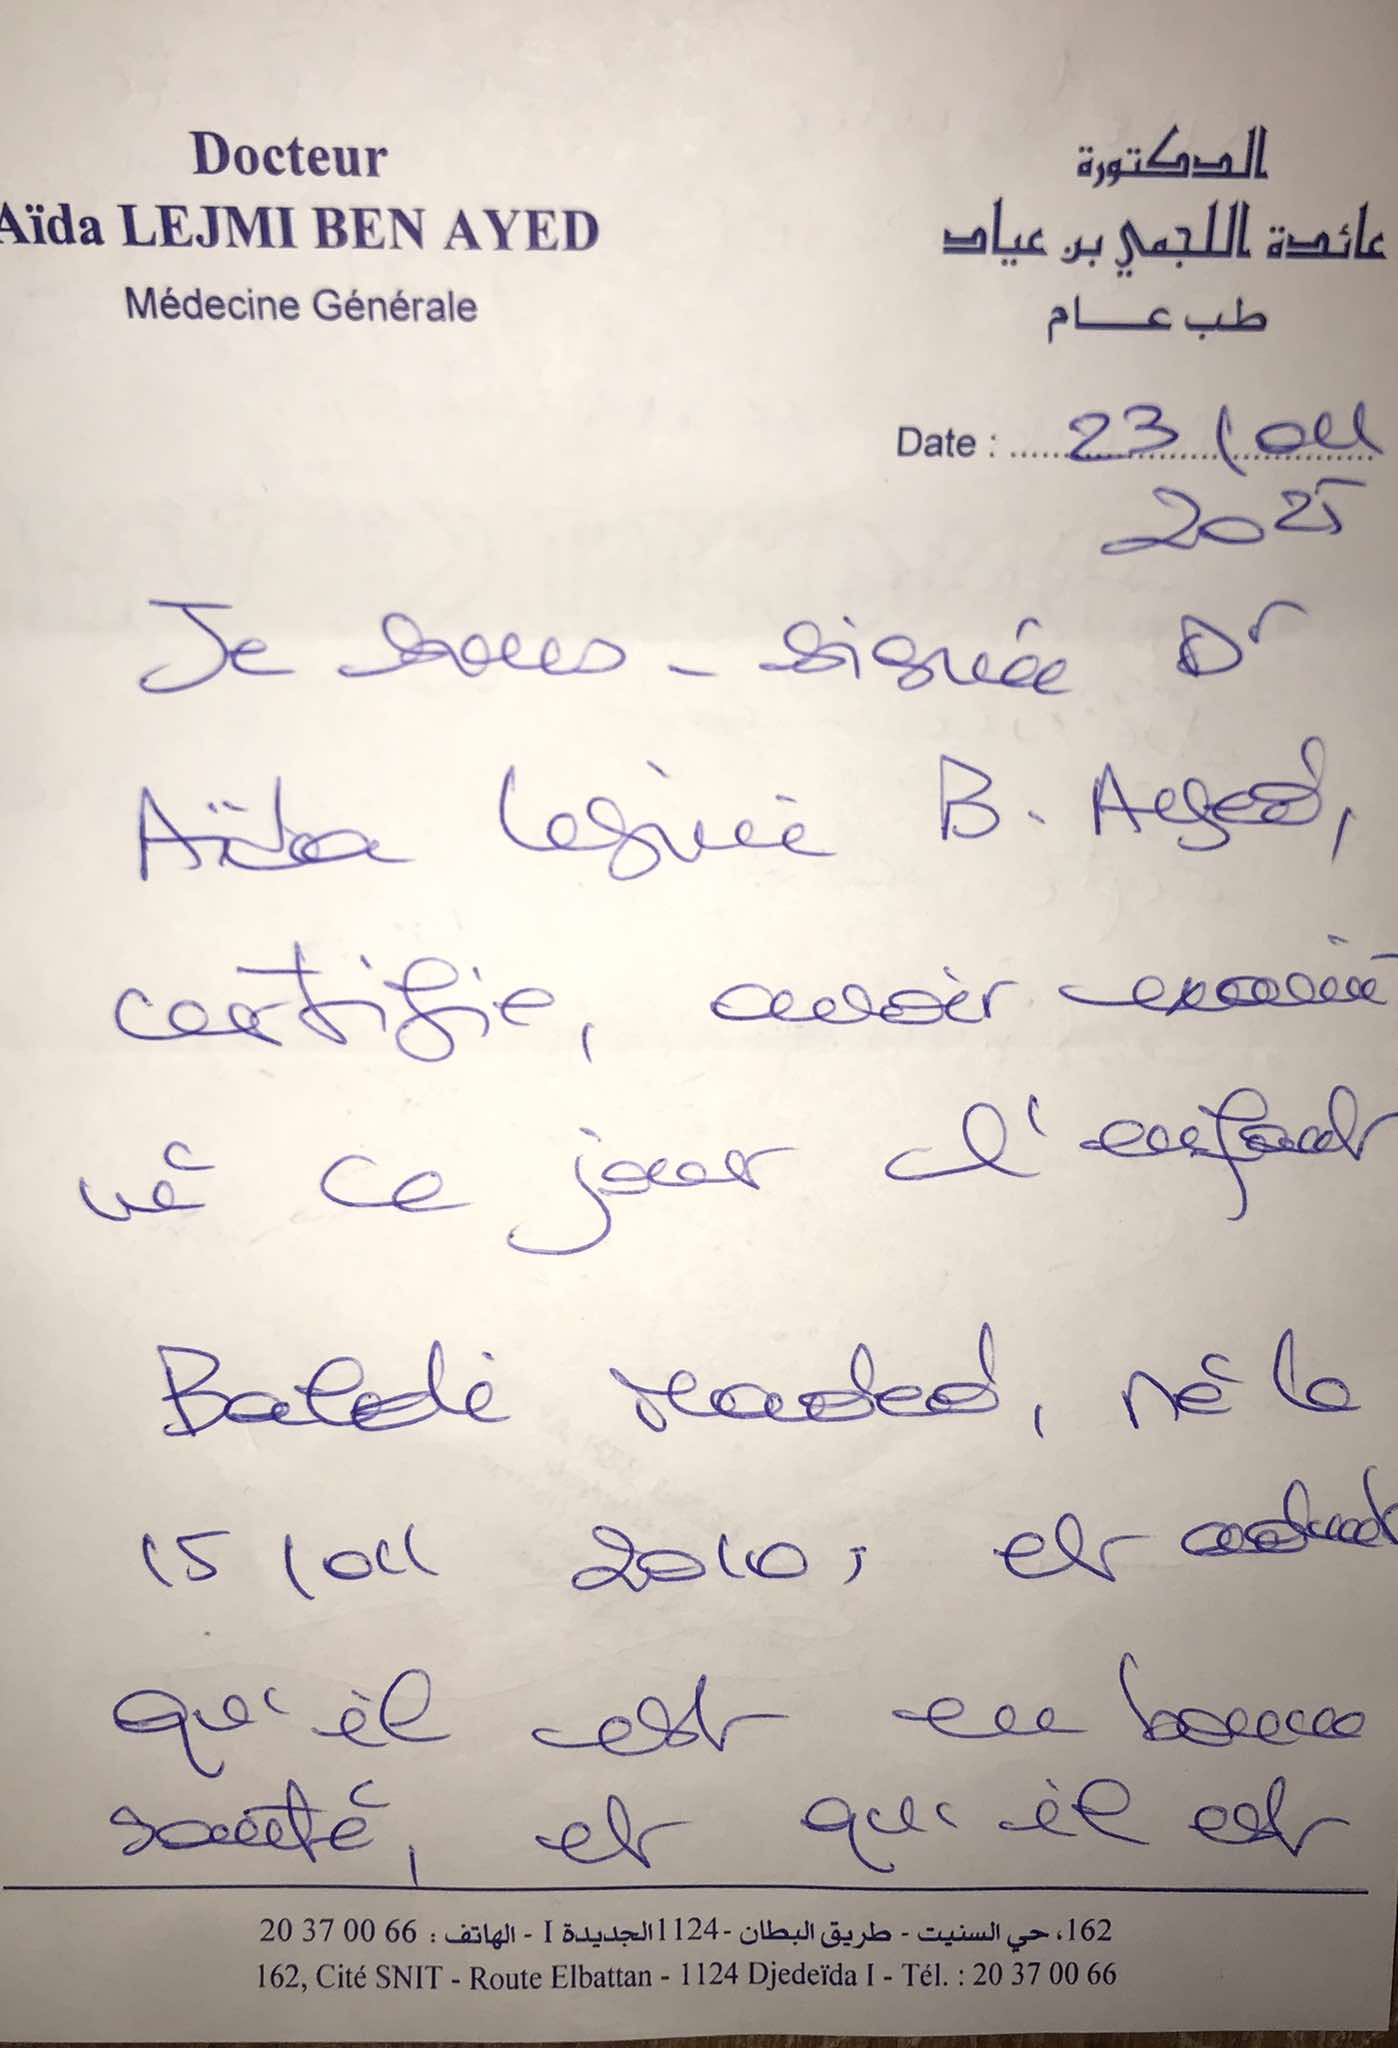 Docteur
Aïda LEJMI BEN AYED
Médecine Générale
الدكتورة
عائدة اللجمي بن عياد
طب عام
Date : 23/04
2025
Je sous-signée Dr
Aïda Lejmi B. Ayed,
certifie, avoir exami
né ce jour l'enfant
né le
15/04 2010, et
qu'il est en bonne
santé, et qu'il est
162، حي السنيت - طريق البطان - 1124 الجديدة I - الهاتف : 66 00 37 20
162, Cité SNIT - Route Elbattan - 1124 Djedeïda I - Tél. : 20 37 00 66